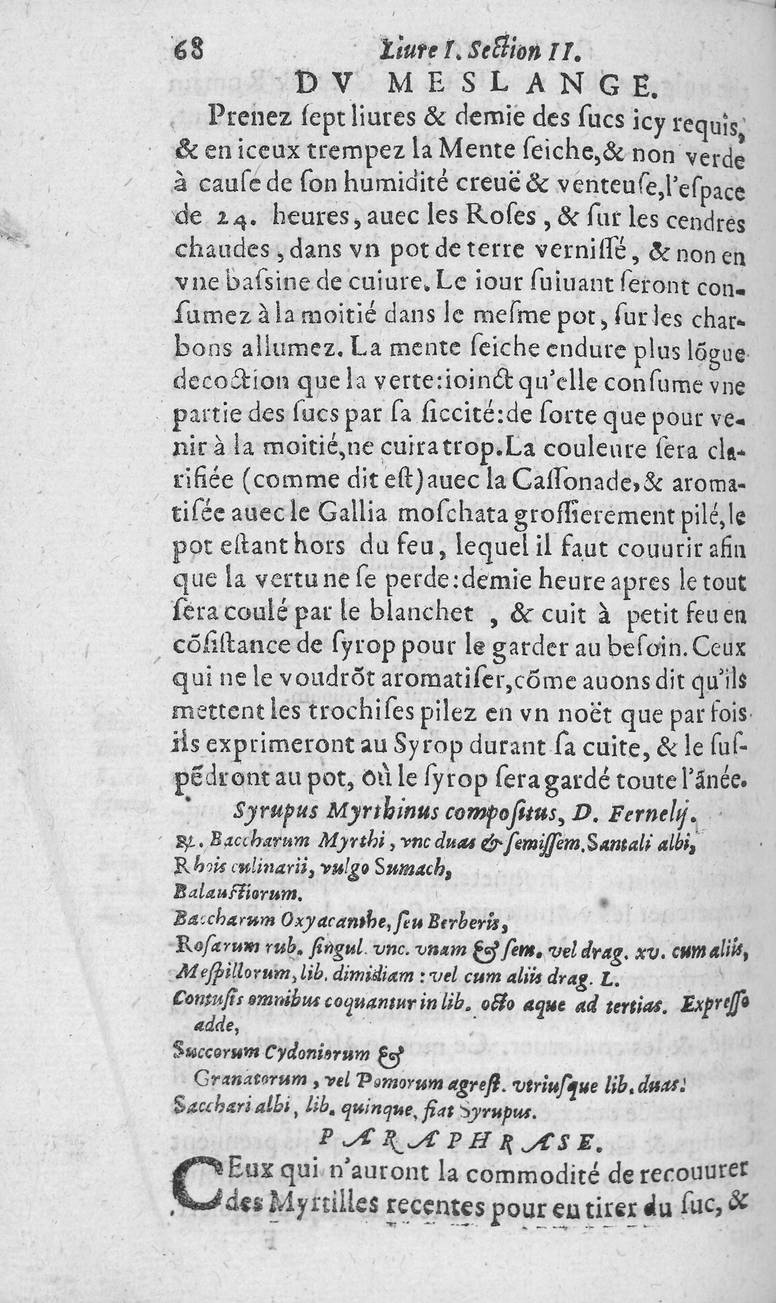 68 Liure I. Section II.
DV MESLANGE.
Prenez ſept liures & demie des ſucs icy requis,
& en iceux trempez la Mente ſeiche, & non verde
à cauſe de ſon humidité creuë & venteuſe, l'eſpace
de 24. heures, auec les Roſes, & ſur les cendres
chaudes, dans vn pot de terre verniſſé, & non en
vne baſsine de cuiure. Le iour ſuiuant ſeront con-
ſumez à la moitié dans le meſme pot, ſur les char-
bons allumez. La mente ſeiche endure plus lõgue
decoction que la verte: ioinct qu'elle conſume vne
partie des ſucs par ſa ſiccité: de ſorte que pour ve-
nir à la moitié, ne cuira trop. La couleure ſera cla-
rifiée (comme dit eſt) auec la Caſſonade, & aroma-
tiſée auec le Gallia moſchata groſſierement pilé, le
pot eſtant hors du feu, lequel il faut couurir afin
que la vertu ne ſe perde: demie heure apres le tout
ſera coulé par le blanchet , & cuit à petit feu en
cõſiſtance de ſyrop pour le garder au beſoin. Ceux
qui ne le voudrõt aromatiſer, cõme auons dit qu'ils
mettent les trochiſes pilez en vn noët que par fois
ils exprimeront au Syrop durant ſa cuite, & le ſuſ-
pẽdront au pot, où le ſyrop ſera gardé toute l'ãnée.
Syrupus Myrthinus compoſitus, D. Fernelij.
℞. Baccharum Myrthi, vnc duas & ſemiſſem. Santali albi,
Rhois culinarii, vulgo Sumach,
Balauſtiorum.
Baccharum Oxyacanthe, ſeu Berberis,
Roſarum rub. ſingul. vnc. vnam & ſem. vel drag. xv. cum aliis,
Meſpillorum, lib. dimidiam: vel cum aliis drag. L.
Contuſis omnibus coquantur in lib. octo aque ad tertias. Expreſſo
adde,
Succorum Cydoniorum &
Granatorum, vel Pomorum agreſt. vtriuſque lib. duas:
Sacchari albi, lib. quinque, fiat Syrupus.
PARAPHRASE.
CEux qui n'auront la commodité de recouurer
des Myrtilles recentes pour en tirer du ſuc, &